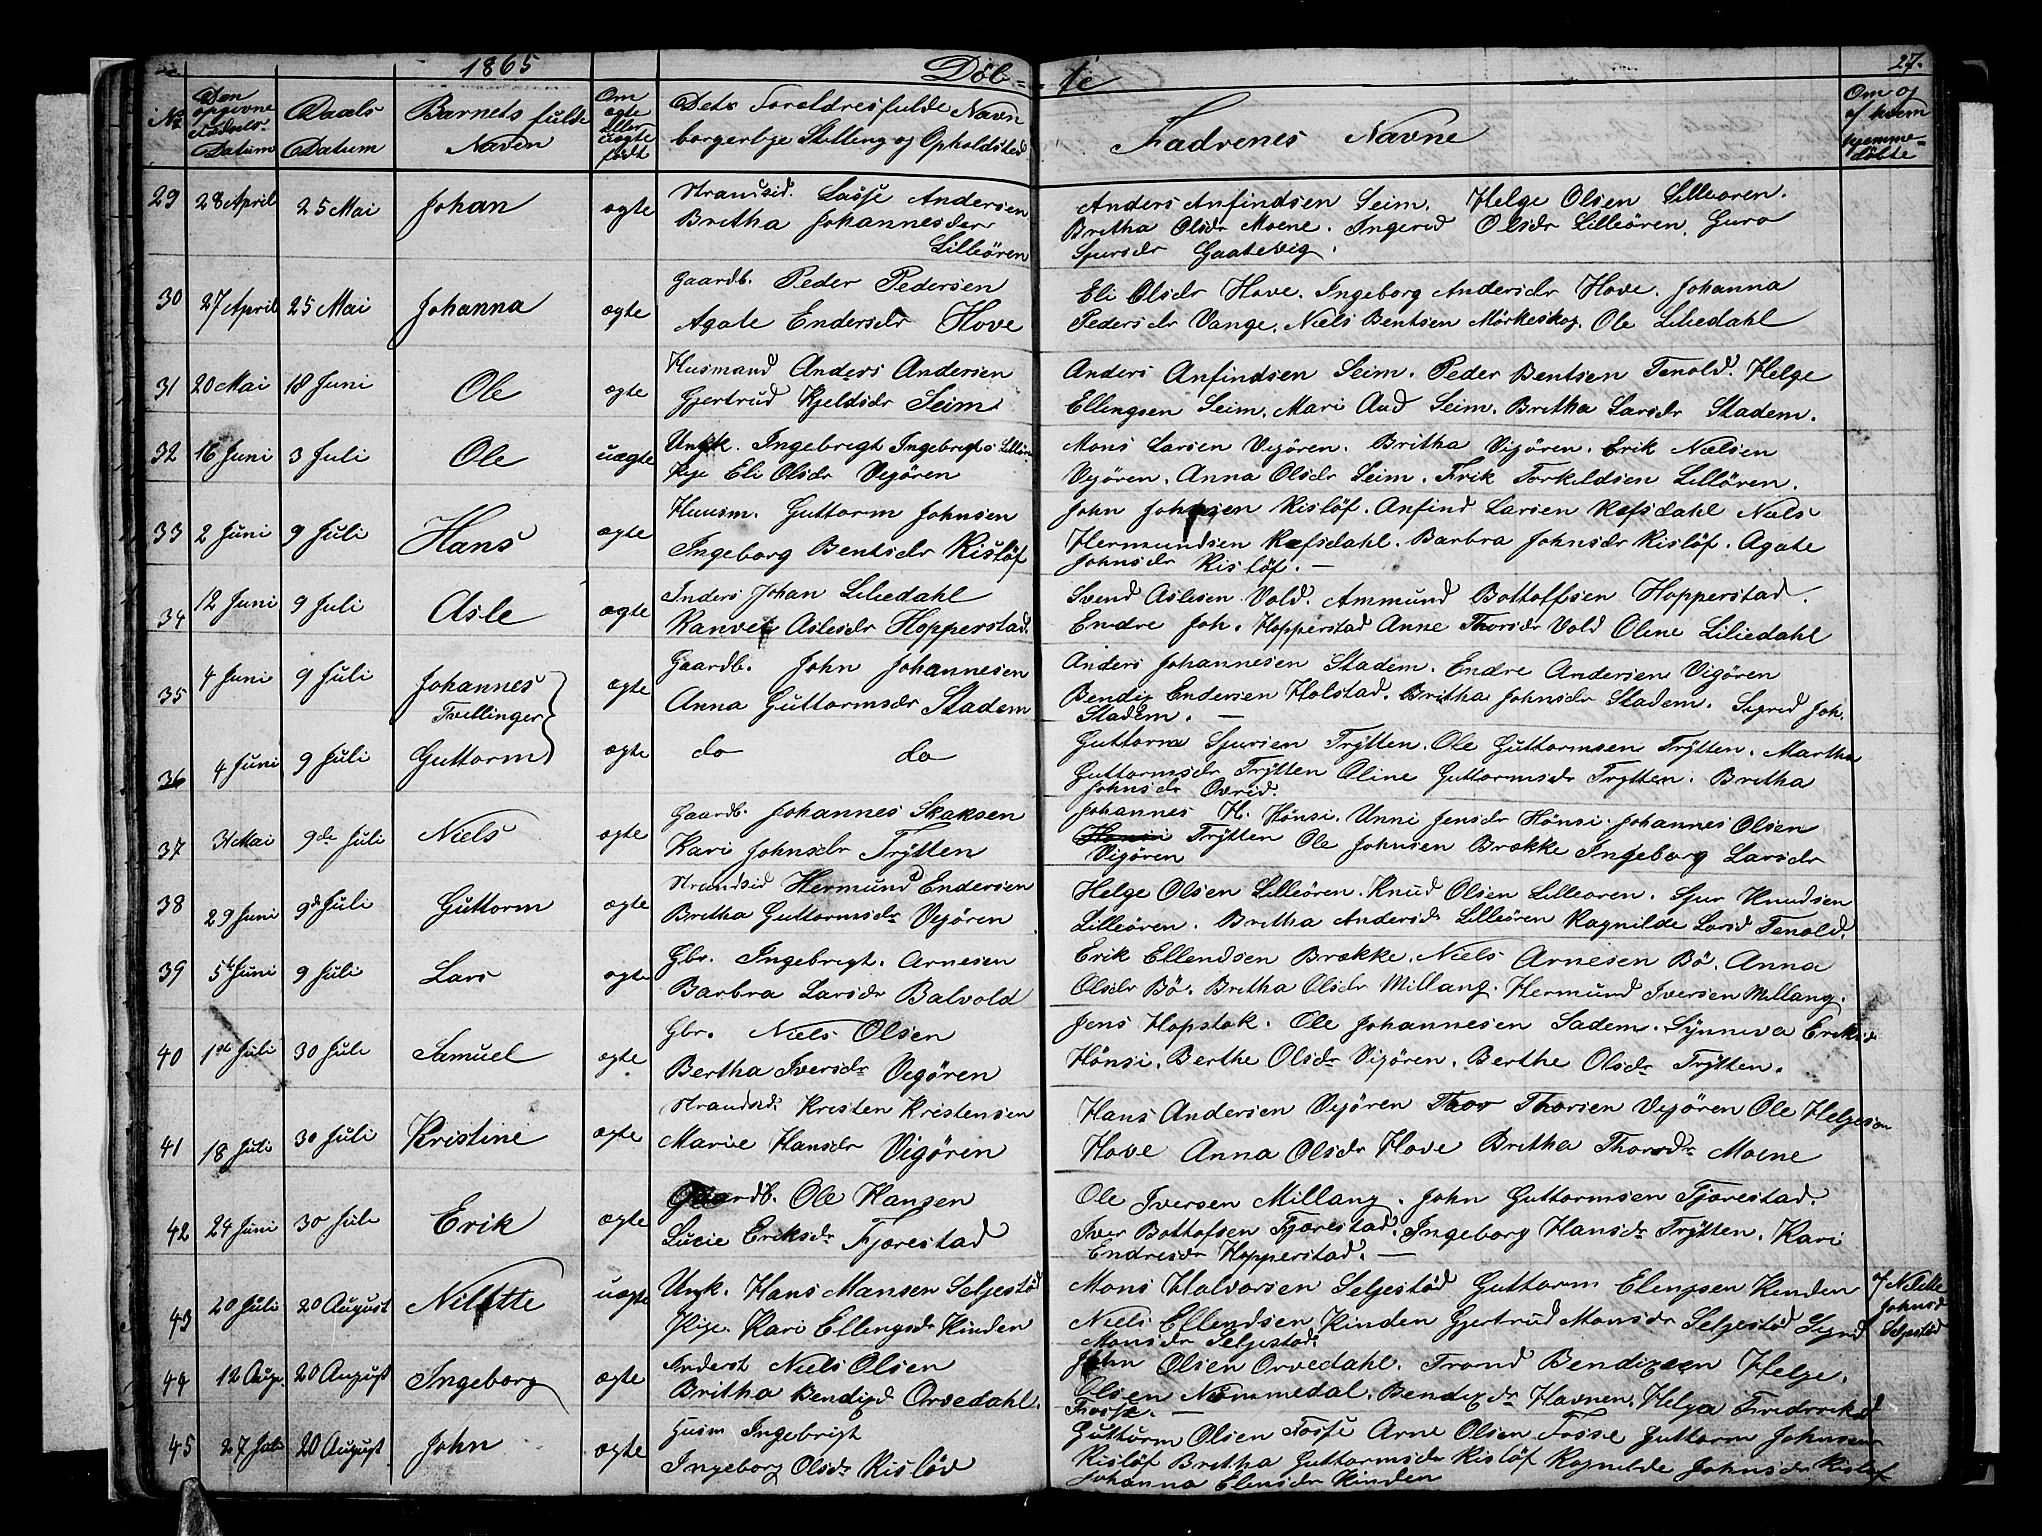 1865 Døb= =te 27.
No Den opgivne Fødsels Datum Daabs Datum Barnets fulde Navn Om ægte eller uægte født Dets Forældres fulde Navn borgerlige Stilling og Opholdsted Fadrenes Navne Om og af hvem hjemme=døbte
29 28 April 25 Mai Johan ægte Strandsid. Lasse Andersen
Britha Johannesdr
Lilleören
Anders Anfindsen Seim. Helge Olsen Lilleören.
Britha Olsdr Moene. Ingerid Olsdr Lilleören, Guro
Sjursdr Gaatevig.
30 27 April 25 Mai Johanna ægte Gaardb. Peder Pedersen
Agate Endersdr Hove
Eli Olsdr Hove. Ingeborg Andersdr Hove. Johanna
Pedersdr Vange. Niels Bentsen Mörkeskog. Ole Liliedahl
31 20 Mai 18 Juni Ole ægte Husmand Anders Andersen
Gjertrud Kjeldsdr Seim
Anders Anfindsen Seim. Peder Bentsen Tenold. Helge
Ellengsen Seim. Mari And Seim. Britha Larsdr Stadem.
32 16 Juni 3 Juli Ole uægte Ungk. Ingebrigt Ingebrigts Lilleör
Pige Eli Olsdr Vigören
Mons Larsen Vigören. Britha Vigören. Erik Nielsen
Vigören. Anna Olsdr Seim. Erik Torkildsen Lilleören.
33 2 Juni 9 Juli Hans ægte Huusm. Guttorm Johnsen
Ingeborg Bentsdr Rislöf
John Johnsen Rislöf. Anfind Larsen Refsdahl Niels
Hermundsen Refsdahl. Barbra Johnsdr Rislöf. Agate
Johnsdr Rislöf. —
34 12 Juni 9 Juli Asle ægte Inders Johan Liliedahl
Ranvei Aslesdr Hopperstad.
Svend Aslesen Vold. Ammund Bottolfsen Hopperstad.
Endre Joh. Hopperstad Anne Thorsdr Vold Oline Liliedahl
35 4 Juni 9 Juli Johannes
Tvillinger
ægte Gaardb. John Johannesen
Anna Guttormsdr Stadem
Anders Johannesen Stadem. Endre Andersen Vigören
Bendix Endersen Holstad. Britha Johnsdr Stadem. Sigrid Joh.
Stadem. —
36 4 Juni 9 Juli Guttorm ægte do do
Guttorm Sjursen Trÿtten. Ole Guttormsen Trÿtten. Martha
Guttormsdr Trÿtten Oline Guttormsdr Trytten. Britha
Johnsdr Övrid.
37 31 Mai 9de Juli Niels ægte Gaardb. Johannes Skaksen
Kari Johnsdr Trÿtten
Johannes H. Hönsi. Unni Jensdr Hönsi. Johannes Olsen
Hönsi Trÿtten Ole Johnsen Brække Ingeborg Larsdr
Vigören
38 29 Juni 9de Juli Guttorm ægte Strandsid Hermund Endersen
Britha Guttormsdr Vigören
Helge Olsen Lilleören. Knud Olsen Lilleoren. Sjur Knudsen
Lilleören. Britha Andersdr Lilleören Ragnilde Larsd Tenold.
39 5te Juni 9 Juli Lars ægte Gbr. Ingebrigt. Arnesen
Barbra Larsdr Balvold
Erik Ellendsen Brække. Niels Arnesen Bö. Anna
Olsdr Bö. Britha Olsdr Millang. Hermund Iversen Millang.
40 1ste Juli 30 Juli Samuel ægte Gbr. Niels Olsen
Bertha Iversdr Vigören
Jens Hopstok. Ole Johannesen Sadem. Sÿnneva Eriksd
Hönsi. Berthe Olsdr Vigören. Berthe Olsdr Trÿtten.
41 18 Juli 30 Juli Kristine ægte Strandsd. Kristen Kristensen
Marie Hansdr Vigören
Hans Andersen Vigören Thor Thorsen Vigören Ole Helgesen
Hove Anna Olsdr Hove Britha Thorsdr Moene
42 24 Juni 30 Juli Erik ægte Gaardb. Ole Hansen
Lucie Eriksdr Fjærestad
Ole Iversen Millang. John Guttormsen Fjærestad.
Iver Bottolfsen Fjærestad. Ingeborg Hansdr Trÿtten. Kari
Endresdr Hopperstad. —
43 20 Juli 20 August Nilette uægte Ungk. Hans Mansen Seljestöd
Pige. Kari Ellengsdr Kinden
Mons Halvorsen Seljestöd Guttorm Elengsen Kinden
Niels Ellendsen Kinden Gjertrud Monsdr Seljestöd Sigrid
Monsdr Seljestöd.
af Nilette
Johnsd
Seljestöd
44 12 Aug. 20 August Ingeborg ægte Inderst Niels Olsen
Britha Bendixd Orvedahl.
John Olsen Orvedahl. Trond Bendixsen Helge.
Olsen Nommedal. Bendixdr Havnen. Helga Fredriksd
Fosse. —
45 27 Juli 20 August John ægte Husm Ingebrigt
Ingeborg Olsdr Rislöv
Guttorm Olsen Fosse Arne Olsen Fosse Guttorm Johnsen
Rislöf Britha Guttormsdr Rislöf Ragnilde Johnsdr Rislöf
Johanna Elensdr Kinden